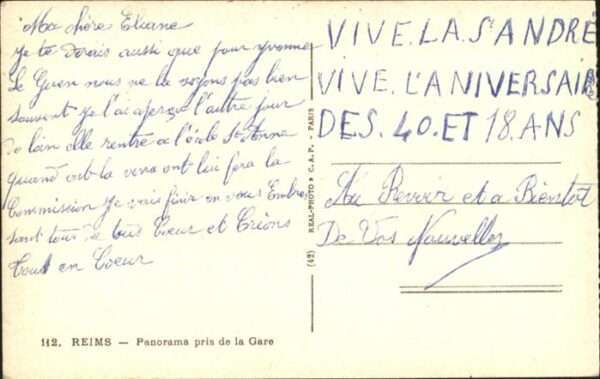 Ma chère Eliane
je te dirais aussi que pour Yvonne
Le Guen nous ne la voyons pas bien
souvent je l'ai aperçu l'autre jour
de loin elle rentre a l'école Ste Anne
quand on la vera ont lui fera la
Commission je vais finir en vous Embras
sant tous de tous Coeur et Crions
tout en Coeur
VIVE.LA.St ANDRÉ
VIVE.L'ANIVERSAIR
DES.40.ET 18.ANS
Au Revoir et a Bientot
De Vos Nouvelles
(42) REAL-PHOTO • C. A. P. - PARIS
112. REIMS — Panorama pris de la Gare